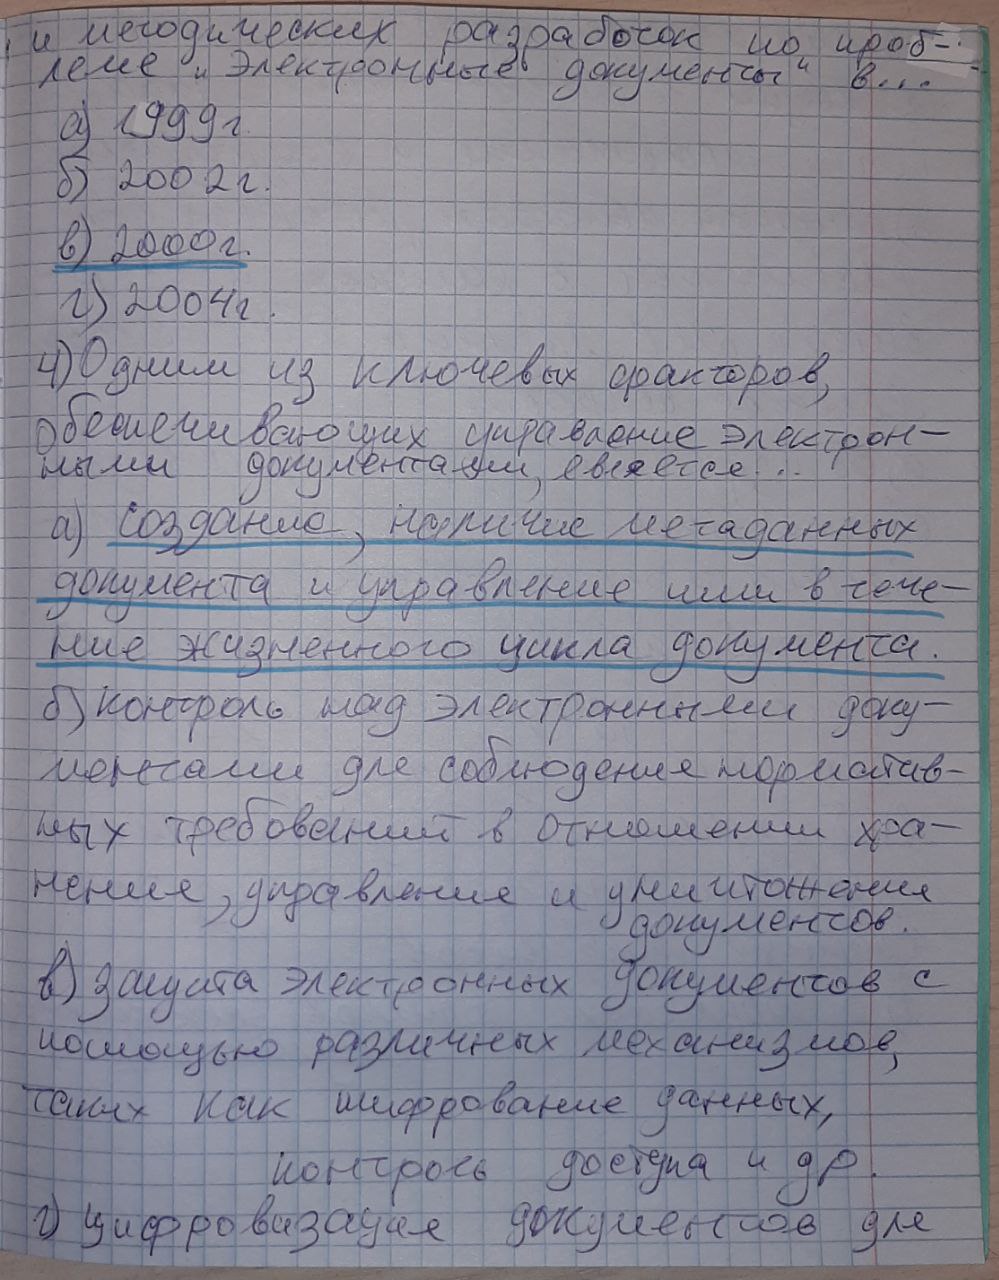 и методических разработок по проб-
леме „Электронные документы" в...
а) 1999г.
б) 2002г.
в) 2000г.
г) 2004г.
4) Одним из ключевых факторов,
обеспечивающих управление электрон-
ными документации, является...
а) создание, наличие метаданных
документа и управление ими в тече-
ние жизненного цикла документа.
б) контроль над электронными доку-
ментами для соблюдения норматив-
ных требований в отношении хра-
нения, управления и уничтожения
документов.
в) защита электронных документов с
помощью различных механизмов,
таких как шифрование данных,
контроль доступа и др.
г) цифровизация документов для